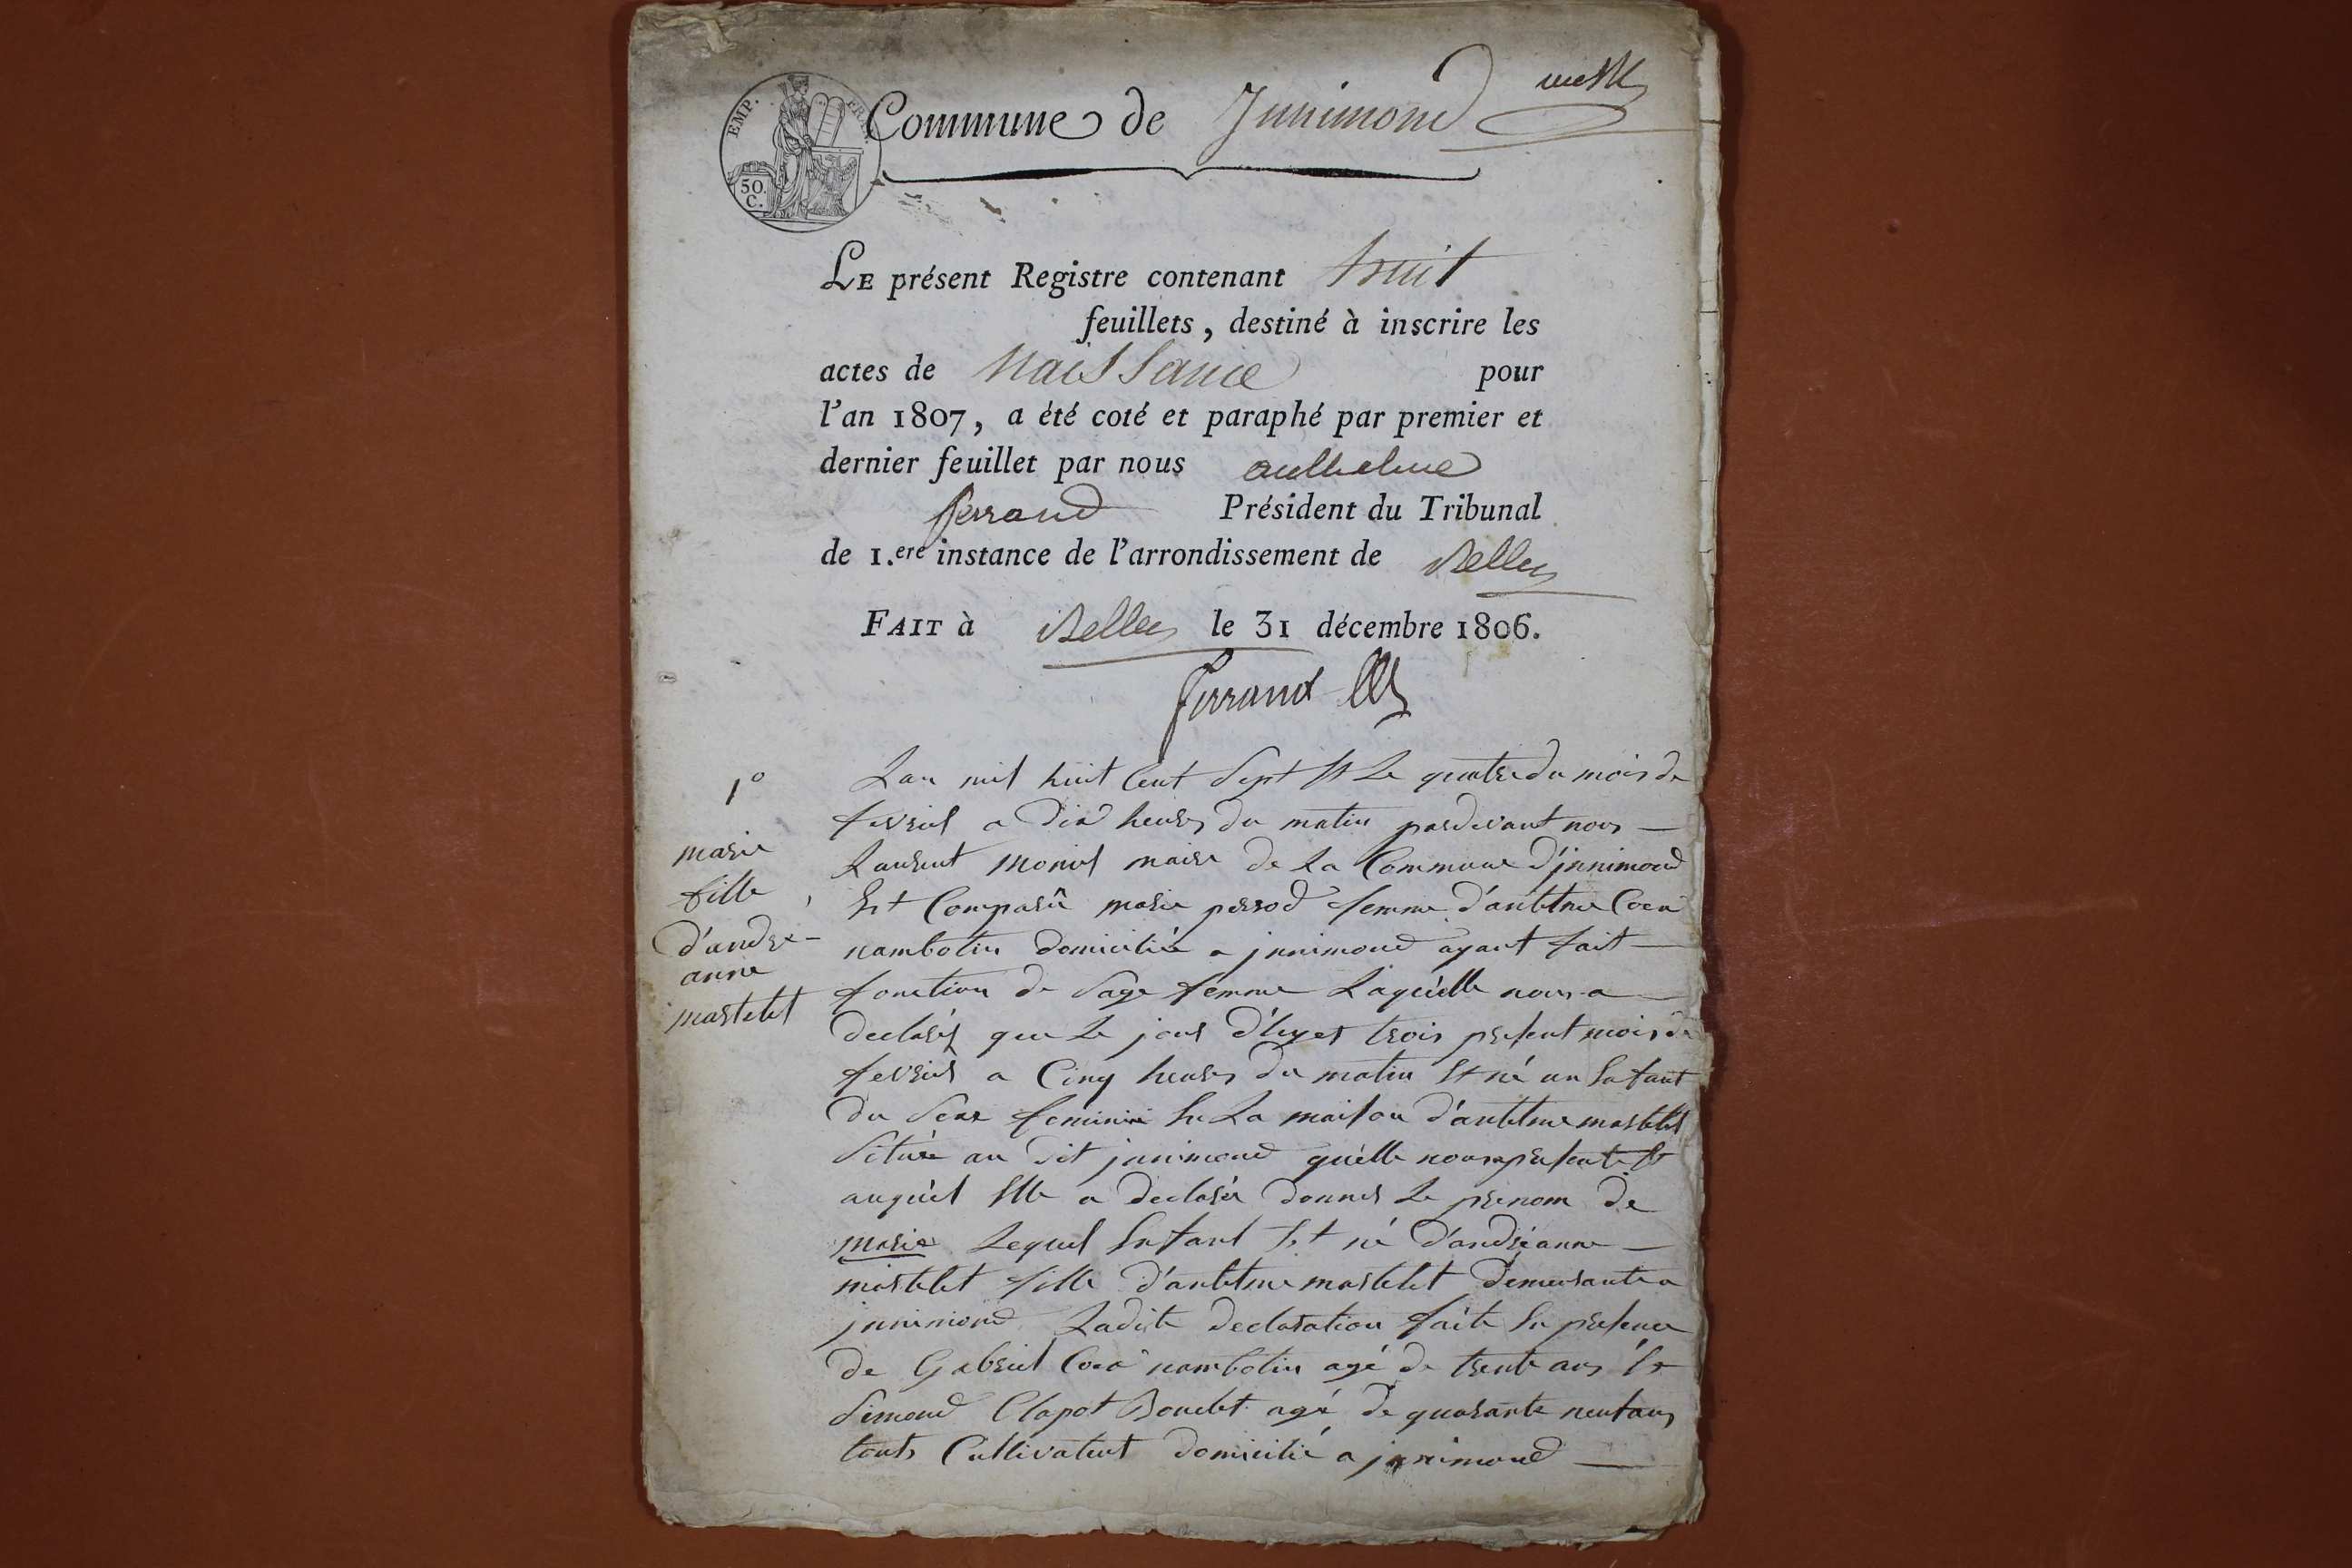 EMP. FR
50. C.
Commune de Innimond
LE présent Registre contenant huit
feuillets, destiné à inscrire les
actes de Naissance pour
l'an 1807, a été coté et paraphé par premier et
dernier feuillet par nous anthelme
ferrand Président du Tribunal
de 1.ere instance de l'arrondissement de Belley
FAIT à Belley le 31 décembre 1806.
ferrand
1°
marie
fille
d'andré-
anne
martelet
Lan mil huit Cent Sept et Le quatre du mois de
fevrier a dix heures du matin pardevant nous
Laurent monet maire de La Commune d'jnnimond
Est Comparû marie perrod femme d'antelme Coca
nambotin domiciliée a jnnimond ayant fait
fonction de Sage femme Laquélle nous a
declaréz que Le jour d'hyer trois present mois de
fevrier a Cinq heures du matin Et né un Enfant
du Sexe feminin En La maison d'antelme martelet
Située au dit jnnimond qu'élle nous presente Et
auquél Elle a declaréz donner Le prenom de
marie Lequel Enfant Et né d'andréanne
martelet fille d'antelme martelet demeurante a
jnnimond Ladite declaration faite En presence
de Gabriel Coca nambotin agé de trente ans Et
Simond Clapot Boudet agé de quarante neuf ans
touts Cultivateurs domicilié a jnnimond